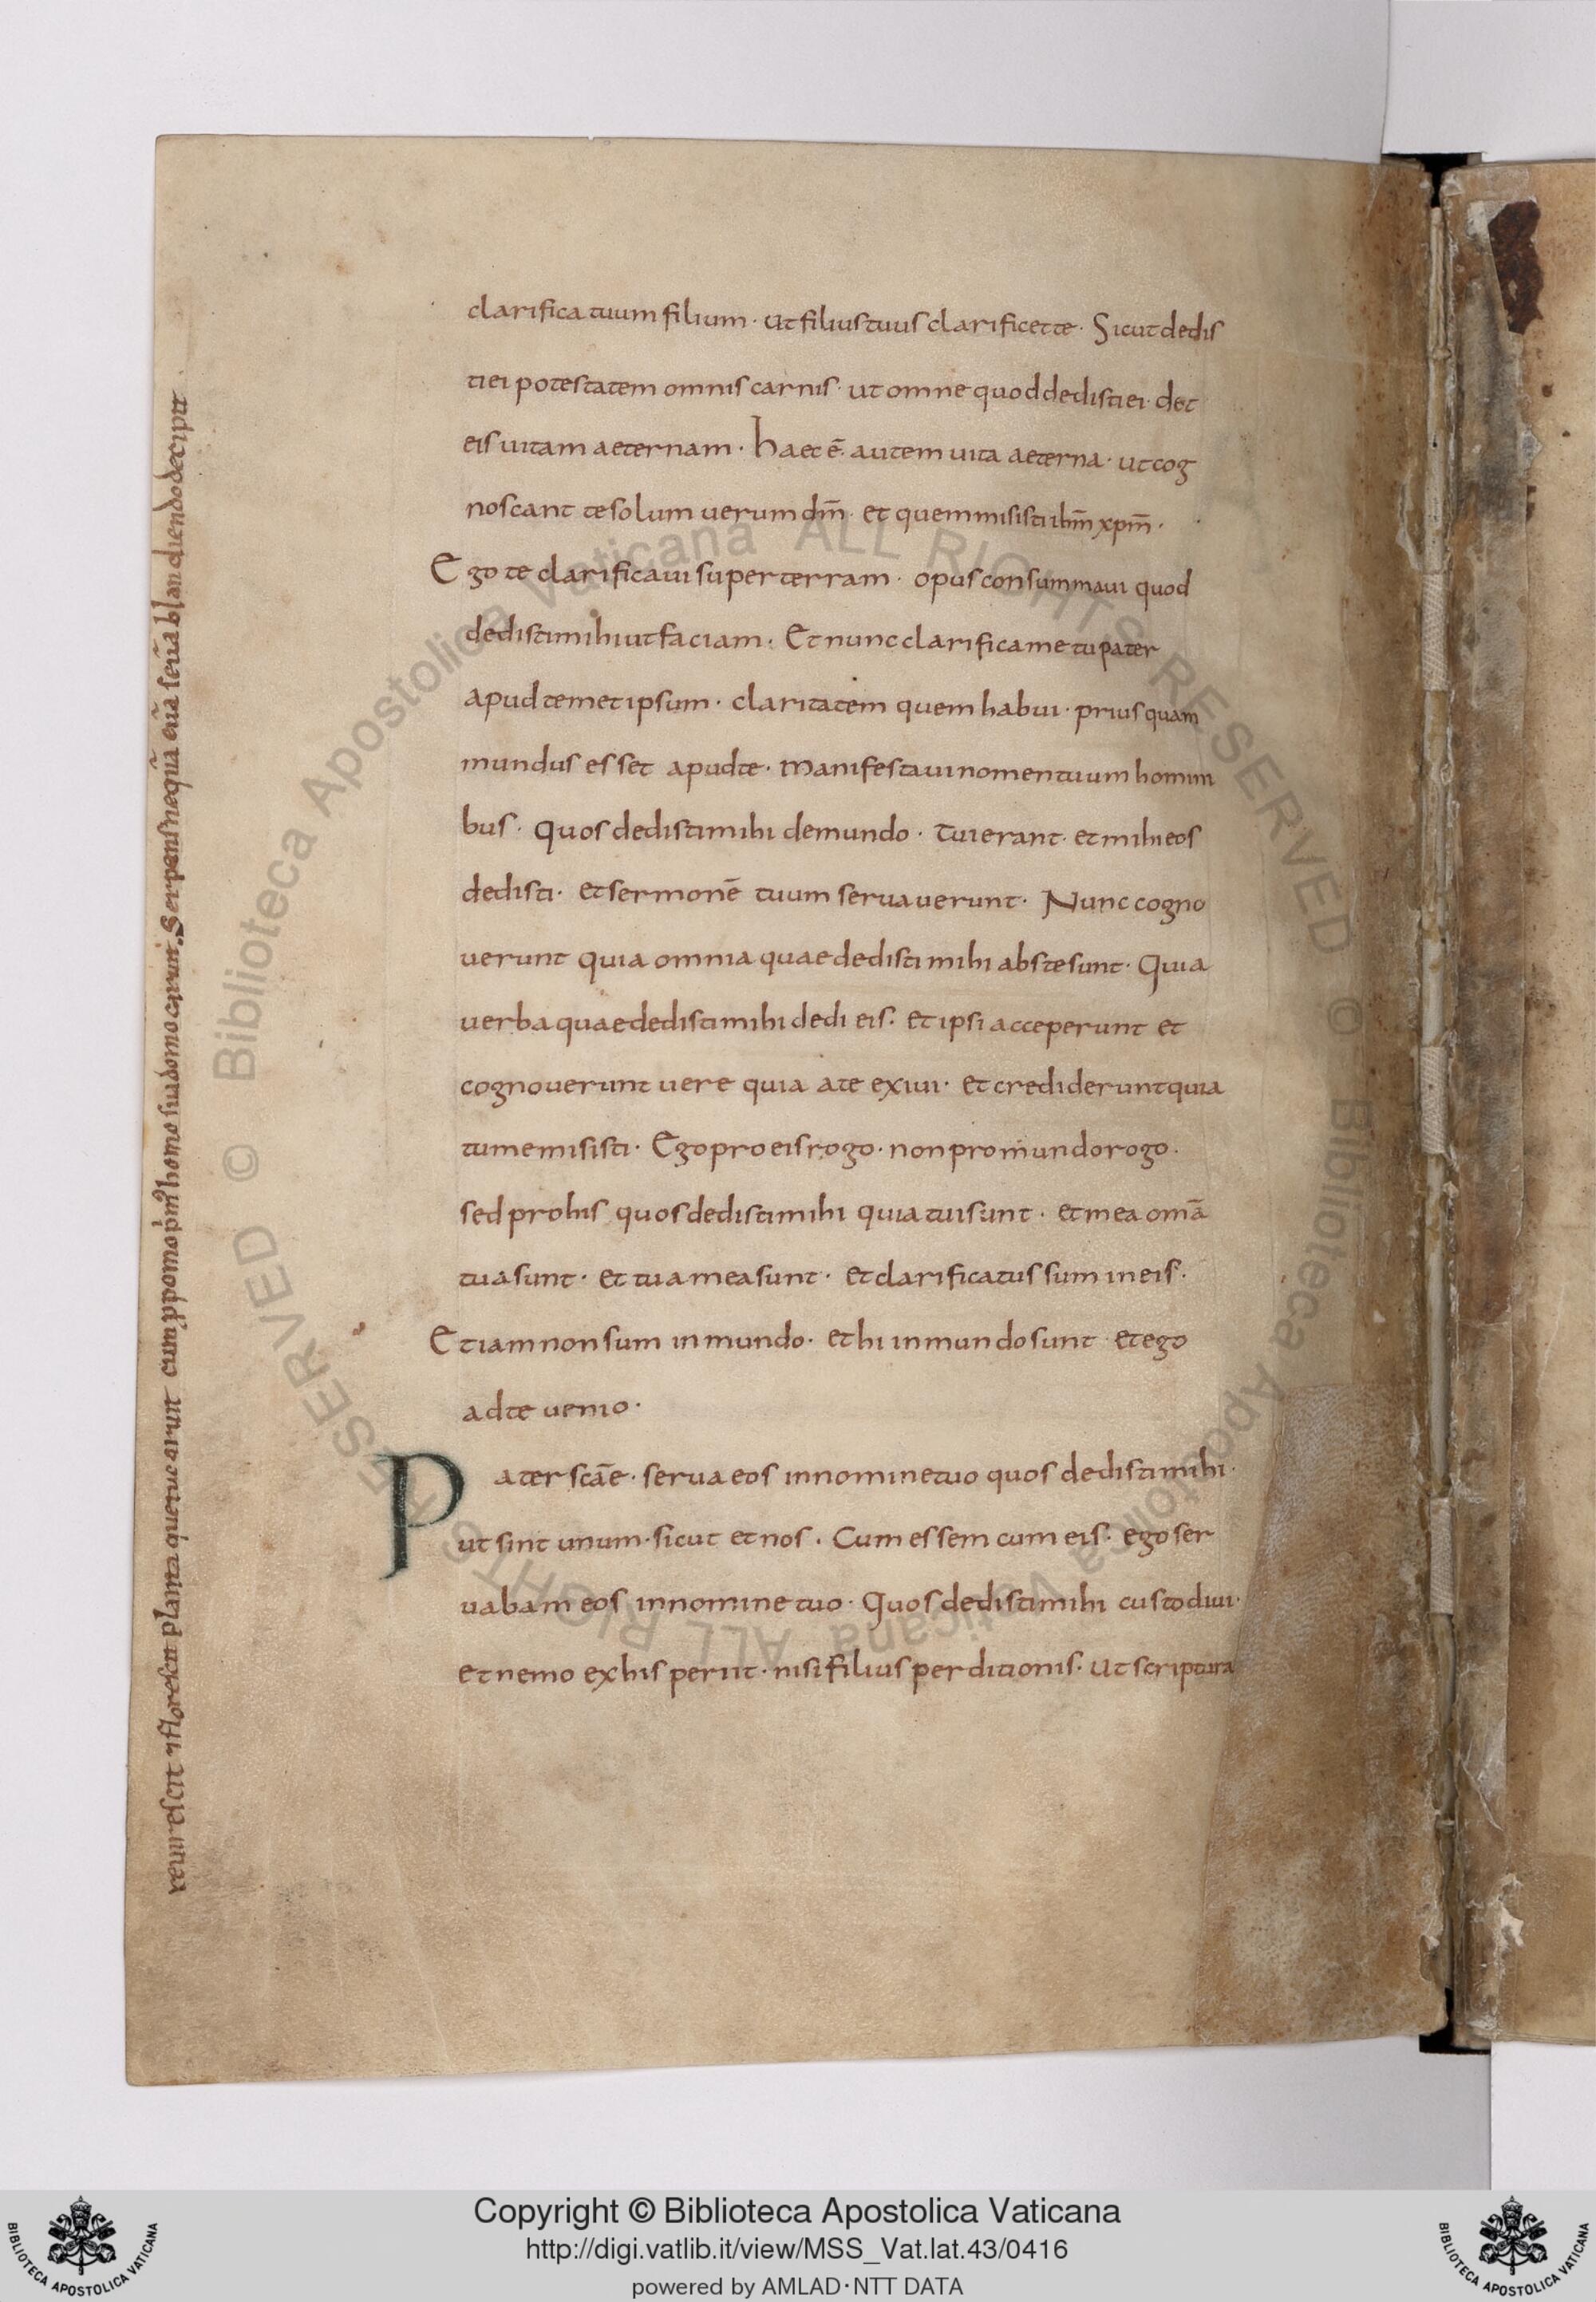 clarifica tuum filium · ut filius tuus clarificet te · Sicut dedis
ti ei potestatem omnis carnis · ut omne quod dedisti ei · det
eis uitam aeternam · haec ē · autem uita aeterna · ut cog
noscant te solum uerum dm̄ · et quem misisti ihm̄ xpm̄ ·
Ego te clarificaui super terram · opus consummaui quod
dedisti mihi ut faciam · Et nunc clarifica me tu pater
apud temet ipsum · claritatem quem habui · priusquam
mundus esset apud te · manifestaui nomen tuum homini
bus · quos dedisti mihi de mundo · Tui erant · et mihi eos
dedisti · et sermonē tuum seruauerunt · Nunc cogno
uerunt quia omnia quae dedisti mihi abs te sunt · Quia
uerba quae dedisti mihi dedi eis · et ipsi acceperunt et
cognouerunt uere quia a te exiui · et crediderunt quia
tu me misisti · Ego pro eis rogo · non pro mundo rogo ·
sed pro his quos dedisti mihi quia tui sunt · et mea omā
tua sunt · et tua mea sunt · et clarificatus sum in eis ·
Et iam non sum in mundo · et hi in mundo sunt et ego
ad te uenio ·
Pater scāe · serua eos in nomine tuo quos dedisti mihi ·
ut sint unum · sicut et nos · Cum essem cum eis · ego ser
uabam eos in nomine tuo · Quos dedisti mihi custodiui ·
et nemo ex his periit · nisi filius perditionis · ut scriptura
reuirescit ⁊ florescit planta que
homo
Serpens
blandiendo decipit
Copyright © Biblioteca Apostolica Vaticana
http://digi.vatlib.it/view/MSS_Vat.lat.43/0416
powered by AMLAD·NTT DATA
BIBLIOTECA APOSTOLICA VATICANA
BIBLIOTECA APOSTOLICA VATICANA
© Biblioteca Apostolica Vaticana ALL RIGHTS RESERVED
© Biblioteca Apostolica Vaticana ALL RIGHTS RESERVED